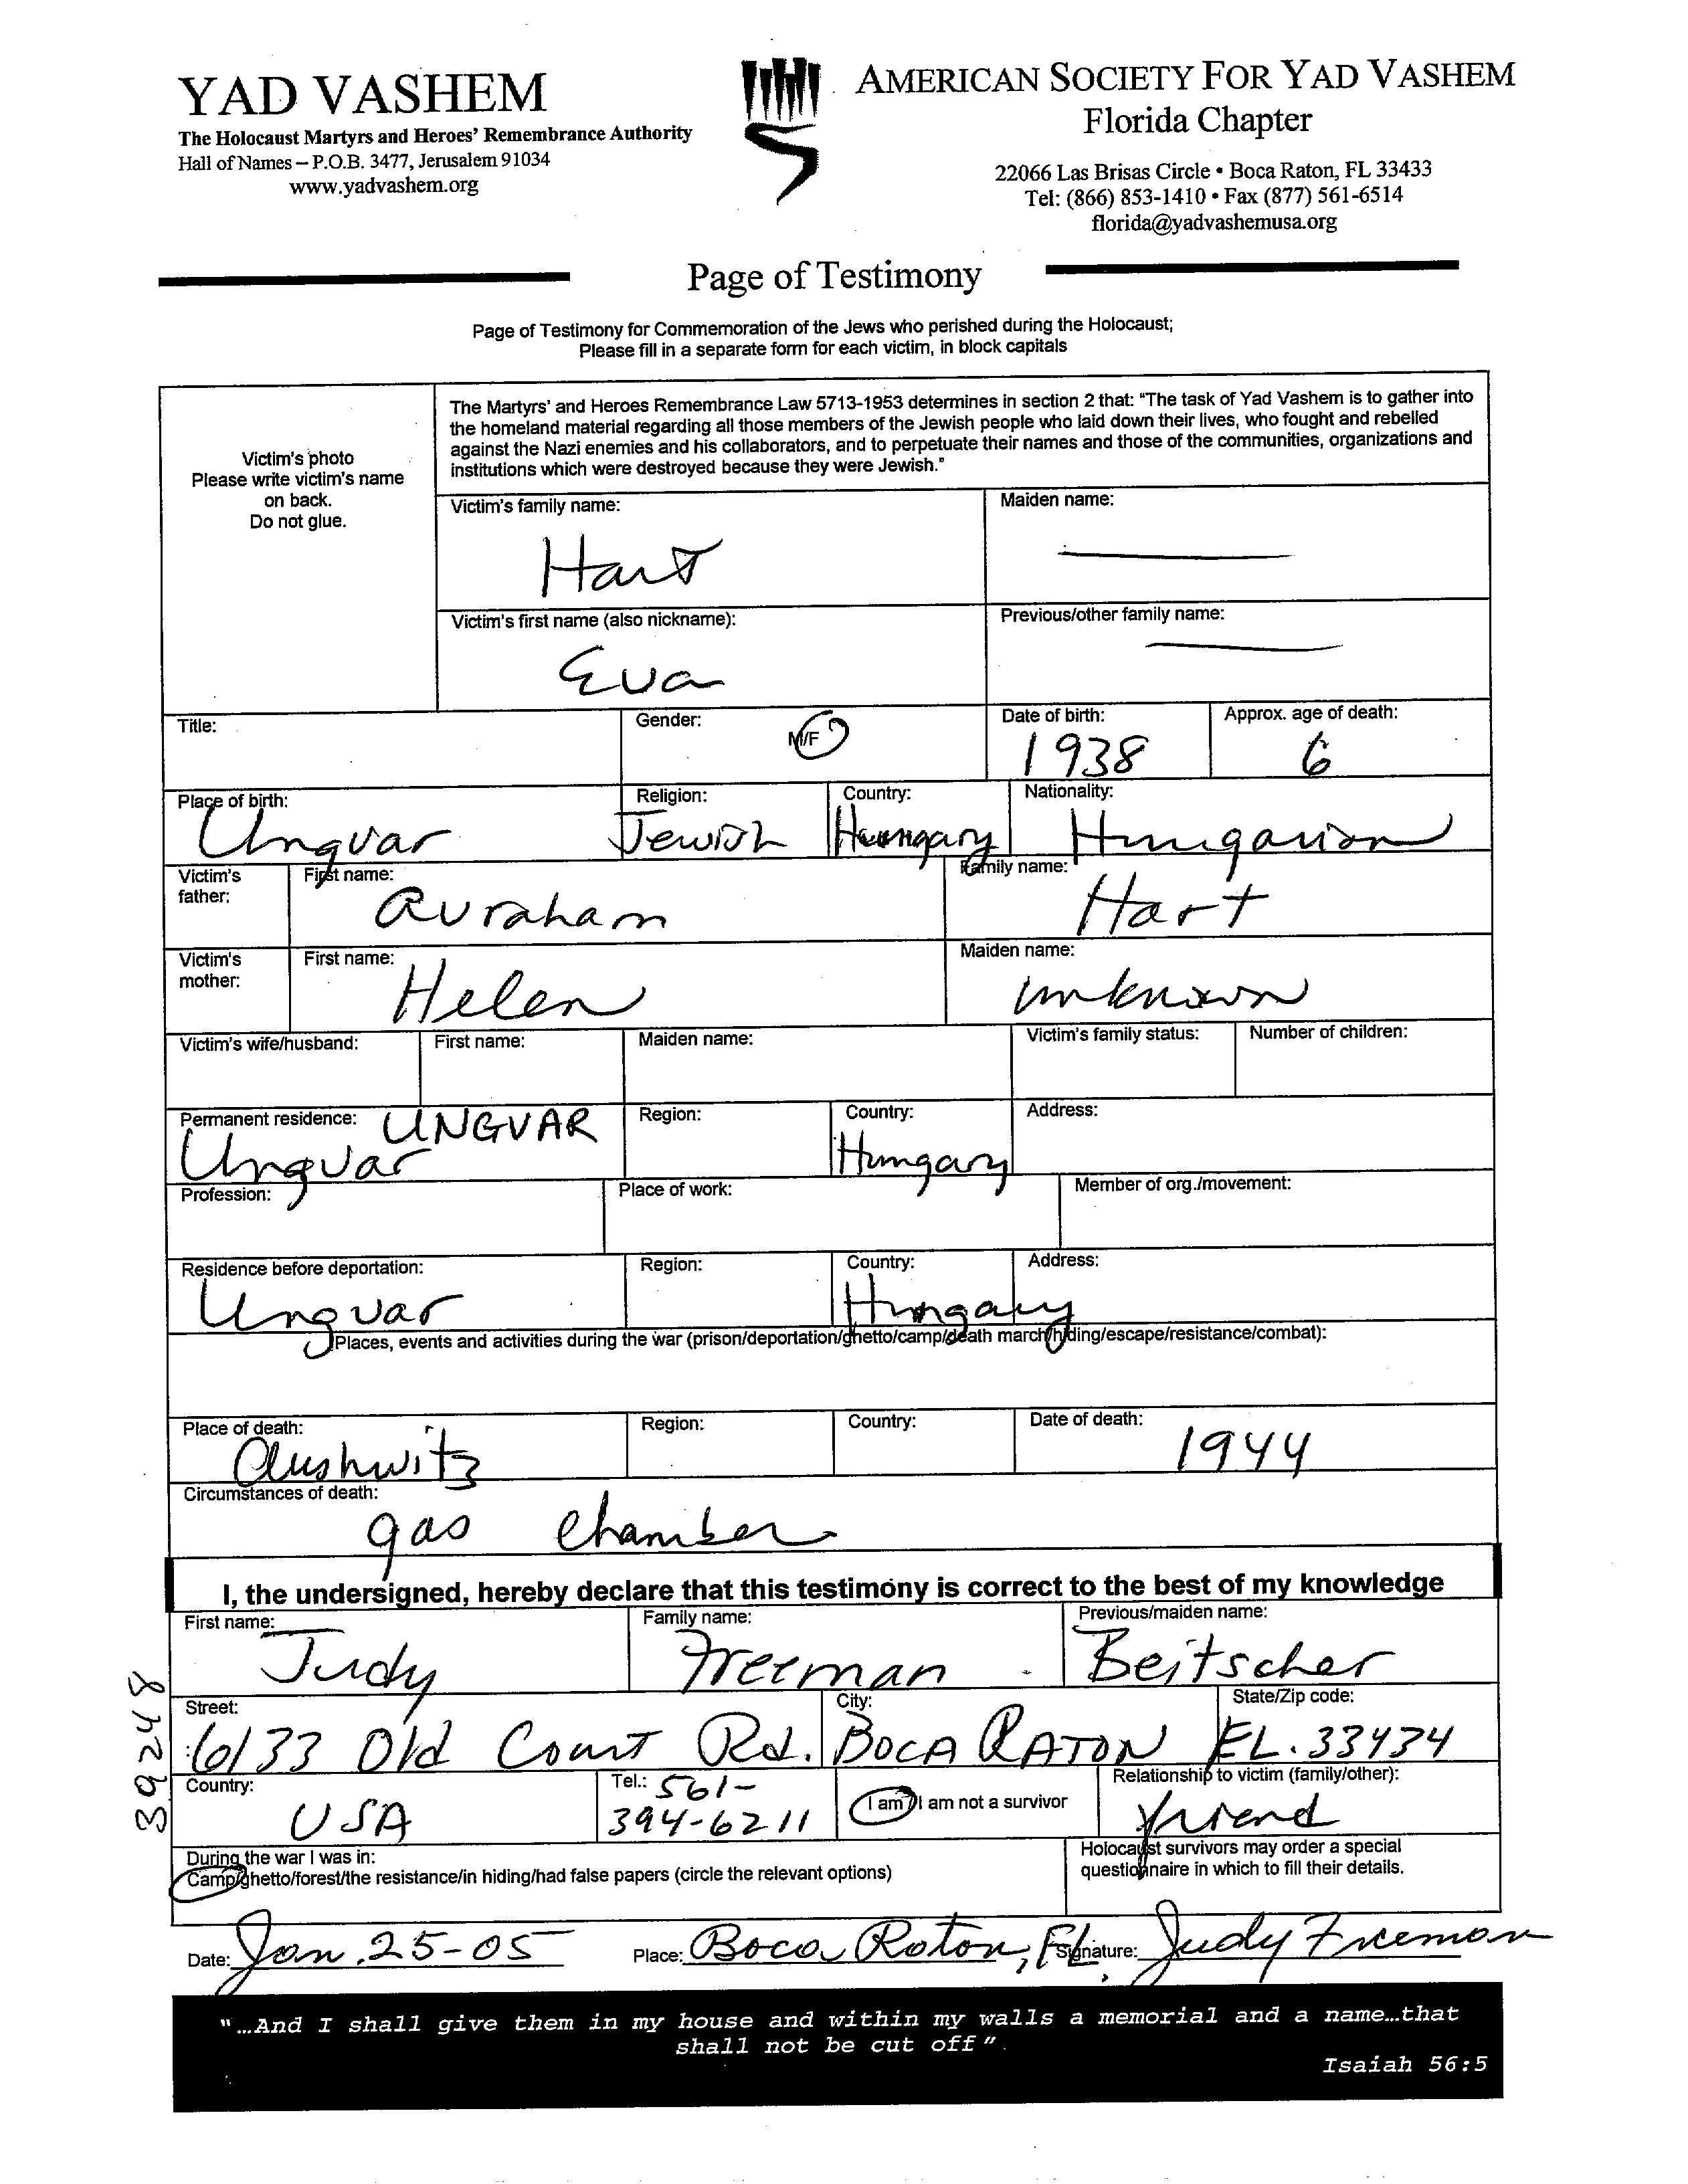 YAD VASHEM
The Holocaust Martyrs and Heroes' Remembrance Authority
Hall of Names – P.O.B. 3477, Jerusalem 91034
www.yadvashem.org
AMERICAN SOCIETY FOR YAD VASHEM
Florida Chapter
22066 Las Brisas Circle • Boca Raton, FL 33433
Tel: (866) 853-1410 • Fax (877) 561-6514
florida@yadvashemusa.org
Page of Testimony
Page of Testimony for Commemoration of the Jews who perished during the Holocaust;
Please fill in a separate form for each victim, in block capitals
Victim's photo
Please write victim's name
on back.
Do not glue.
The Martyrs' and Heroes Remembrance Law 5713-1953 determines in section 2 that: "The task of Yad Vashem is to gather into
the homeland material regarding all those members of the Jewish people who laid down their lives, who fought and rebelled
against the Nazi enemies and his collaborators, and to perpetuate their names and those of the communities, organizations and
institutions which were destroyed because they were Jewish."
Victim's family name: Maiden name:
Hart
Victim's first name (also nickname): Previous/other family name:
Eva
Title: Gender: M/F Date of birth: Approx. age of death:
1938 6
Place of birth: Religion: Country: Nationality:
Ungvar Jewish Hungary Hungarian
Victim's father: First name: Family name:
Avraham Hart
Victim's mother: First name: Maiden name:
Helen unknown
Victim's wife/husband: First name: Maiden name: Victim's family status: Number of children:
Permanent residence: UNGVAR Region: Country: Address:
Ungvar Hungary
Profession: Place of work: Member of org./movement:
Residence before deportation: Region: Country: Address:
Ungvar Hungary
Places, events and activities during the war (prison/deportation/ghetto/camp/death march/hiding/escape/resistance/combat):
Place of death: Region: Country: Date of death:
Aushwitz 1944
Circumstances of death:
gas chamber
I, the undersigned, hereby declare that this testimony is correct to the best of my knowledge
First name: Family name: Previous/maiden name:
Judy Freeman Beitscher
Street: City: State/Zip code:
6133 Old Court Rd. BOCA RATON FL. 33434
Country: Tel.: 561- Relationship to victim (family/other):
USA 394-6211 I am/I am not a survivor friend
During the war I was in:
Camp/ghetto/forest/the resistance/in hiding/had false papers (circle the relevant options)
Holocaust survivors may order a special
questionnaire in which to fill their details.
39248
Date: Jan. 25-05 Place: Boca Raton, FL. Signature: Judy Freeman
"…And I shall give them in my house and within my walls a memorial and a name…that
shall not be cut off".
Isaiah 56:5